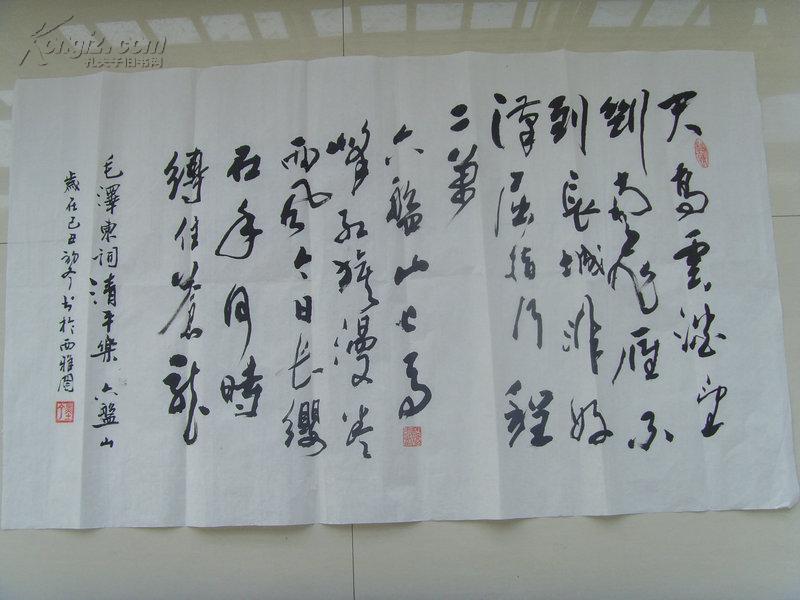 天高雲淡望
斷南飛雁不
到長城非好
漢屈指行程
二萬
六盤山上高
峰紅旗漫卷
西風今日长纓
在手何時
縛住蒼龍
毛澤東詞清平樂六盤山
歲在己丑初冬书於西雅閣
Kongfz.com
孔夫子旧书网